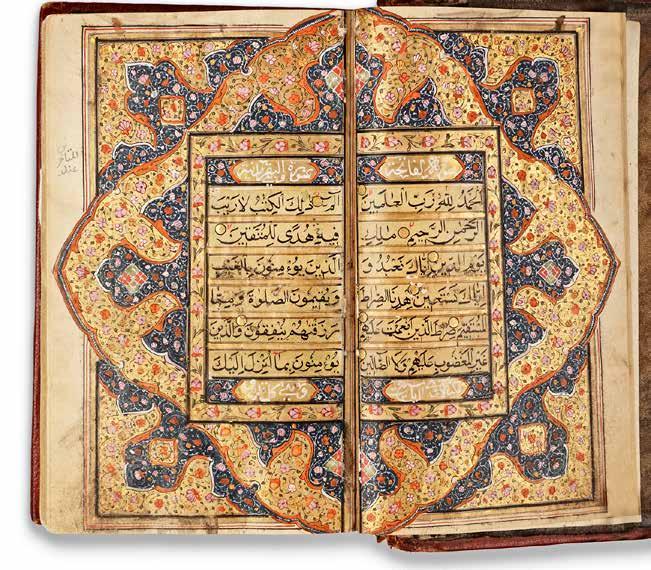 سورة الفاتحة
الحمد لله رب العالمين
الرحمن الرحيم مالك
يوم الدين اياك نعبد و
اياك نستعين اهدنا الصراط
المستقيم صراط الذين انعمت عليهم
غير المغضوب عليهم ولا الضالين
سورة البقرة
الم ذلك الكتب لا ريب
فيه هدى للمتقين
الذين يؤمنون بالغيب
ويقيمون الصلوة ومما
رزقنهم ينفقون والذين
يؤمنون بما انزل اليك